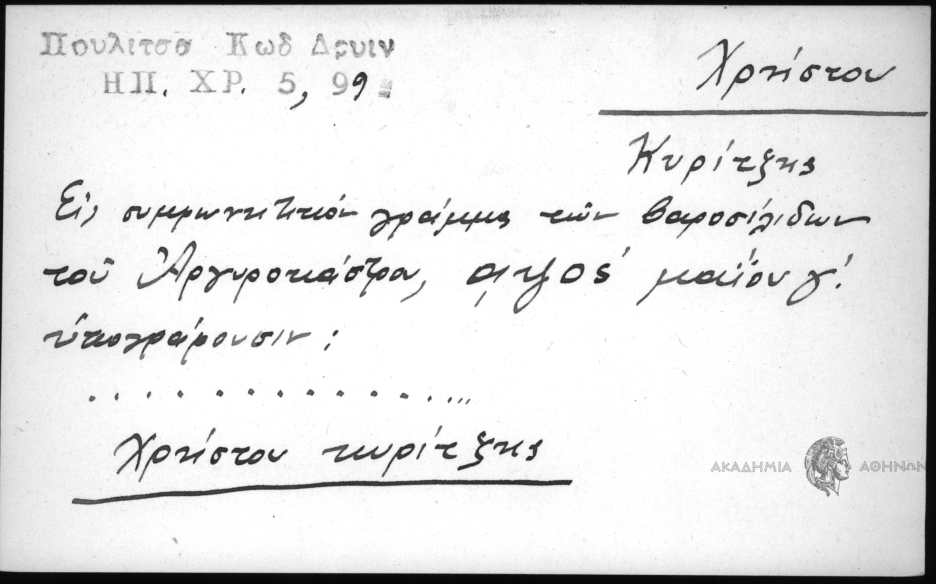 Πουλιτσα Κωδ Δρυιν
ΗΠ. ΧΡ. 5, 99
Χρήστου
Κυρίτζης
Εἰς συμφωνητικόν γράμμα τῶν βαροσίλιδων
τοῦ Ἀργυροκάστρα, αψος΄ μαΐου γ΄.
ὑπογράφουσιν :
. . . . . . . . . . . . . . . . .
Χρήστου κυρίτζης
ΑΚΑΔΗΜΙΑ ΑΘΗΝΩΝ